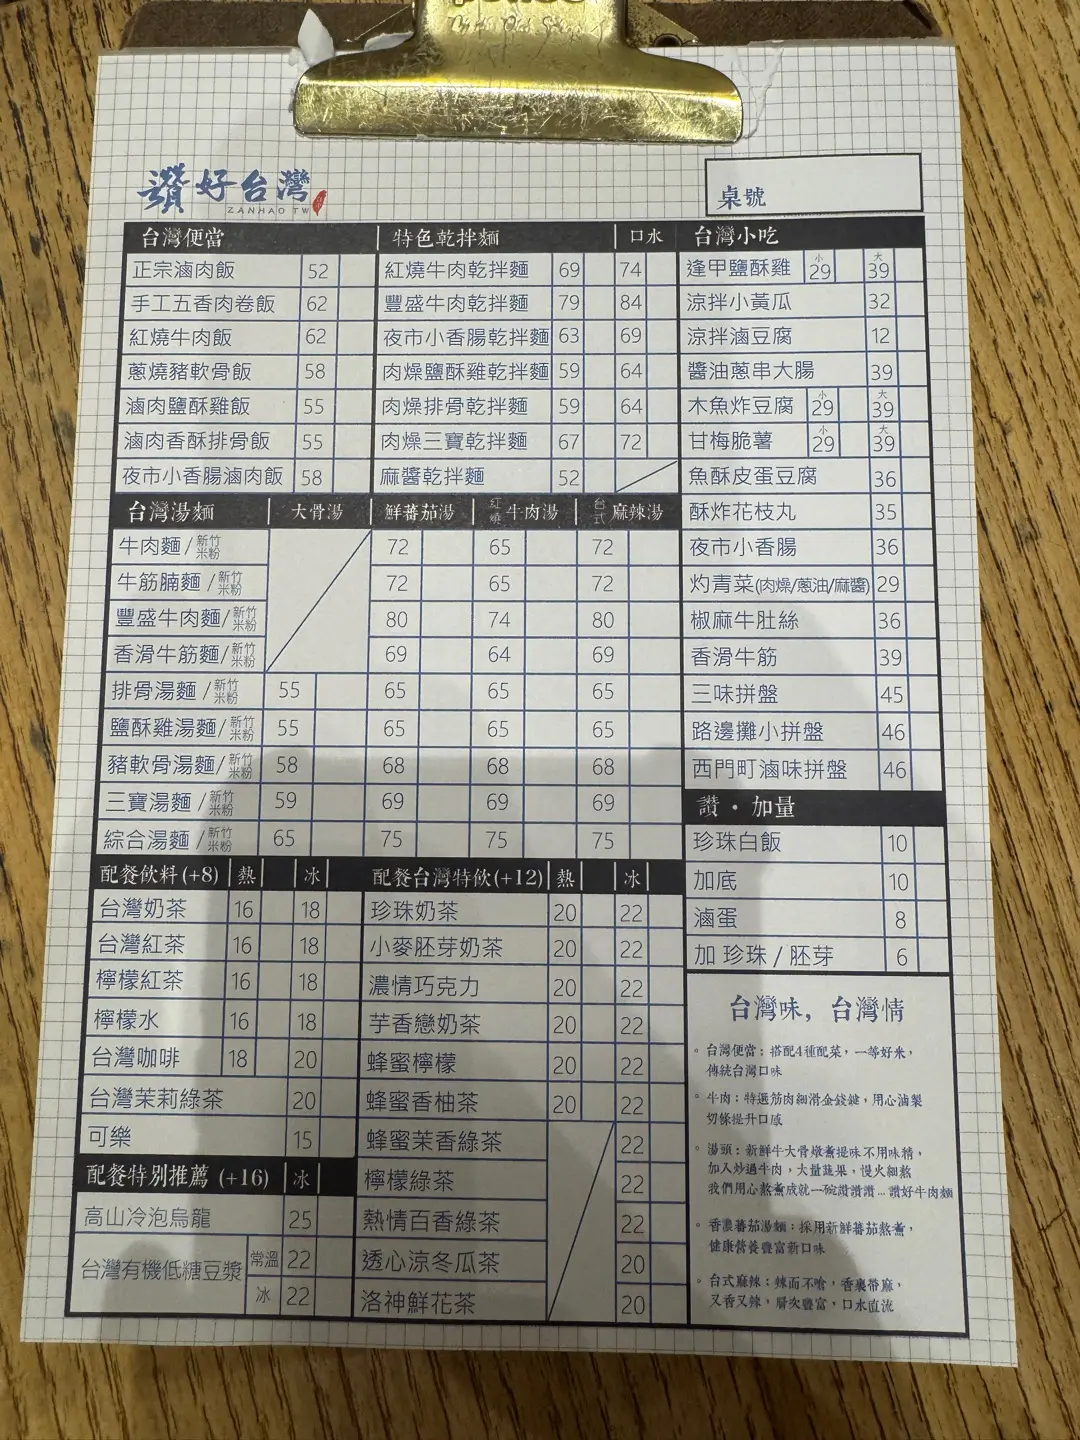 讚好台灣
ZANHAO TW
桌號
台灣便當
正宗滷肉飯 52
手工五香肉卷飯 62
紅燒牛肉飯 62
蔥燒豬軟骨飯 58
滷肉鹽酥雞飯 55
滷肉香酥排骨飯 55
夜市小香腸滷肉飯 58
特色乾拌麵 口水
紅燒牛肉乾拌麵 69 74
豐盛牛肉乾拌麵 79 84
夜市小香腸乾拌麵 63 69
肉燥鹽酥雞乾拌麵 59 64
肉燥排骨乾拌麵 59 64
肉燥三寶乾拌麵 67 72
麻醬乾拌麵 52
台灣小吃
逢甲鹽酥雞 小 29 大 39
涼拌小黃瓜 32
涼拌滷豆腐 12
醬油蔥串大腸 39
木魚炸豆腐 小 29 大 39
甘梅脆薯 小 29 大 39
魚酥皮蛋豆腐 36
酥炸花枝丸 35
夜市小香腸 36
灼青菜(肉燥/蔥油/麻醬) 29
椒麻牛肚絲 36
香滑牛筋 39
三味拼盤 45
路邊攤小拼盤 46
西門町滷味拼盤 46
台灣湯麵 大骨湯 鮮蕃茄湯 紅燒牛肉湯 台式麻辣湯
牛肉麵/新竹米粉 72 65 72
牛筋腩麵/新竹米粉 72 65 72
豐盛牛肉麵/新竹米粉 80 74 80
香滑牛筋麵/新竹米粉 69 64 69
排骨湯麵/新竹米粉 55 65 65 65
鹽酥雞湯麵/新竹米粉 55 65 65 65
豬軟骨湯麵/新竹米粉 58 68 68 68
三寶湯麵/新竹米粉 59 69 69 69
綜合湯麵/新竹米粉 65 75 75 75
讚·加量
珍珠白飯 10
加底 10
滷蛋 8
加 珍珠 / 胚芽 6
配餐飲料(+8) 熱 冰
台灣奶茶 16 18
台灣紅茶 16 18
檸檬紅茶 16 18
檸檬水 16 18
台灣咖啡 18 20
台灣茉莉綠茶 20
可樂 15
配餐特別推薦 (+16) 冰
高山冷泡烏龍 25
台灣有機低糖豆漿 常溫 22
冰 22
配餐台灣特飲(+12) 熱 冰
珍珠奶茶 20 22
小麥胚芽奶茶 20 22
濃情巧克力 20 22
芋香戀奶茶 20 22
蜂蜜檸檬 20 22
蜂蜜香柚茶 20 22
蜂蜜茉香綠茶 22
檸檬綠茶 22
熱情百香綠茶 22
透心涼冬瓜茶 20
洛神鮮花茶 20
台灣味，台灣情
◦ 台灣便當：搭配4種配菜，一等好米，
傳統台灣口味
◦ 牛肉：特選筋肉細滑金錢𦟌，用心滷製
切條提升口感
◦ 湯頭：新鮮牛大骨燉煮提味不用味精，
加入炒過牛肉，大量蔬果，慢火細熬
我們用心熬煮成就一碗讚讚讚...讚好牛肉麵
◦ 香濃蕃茄湯麵：採用新鮮蕃茄熬煮，
健康營養豐富新口味
◦ 台式麻辣：辣而不嗆，香裏帶麻，
又香又辣，層次豐富，口水直流